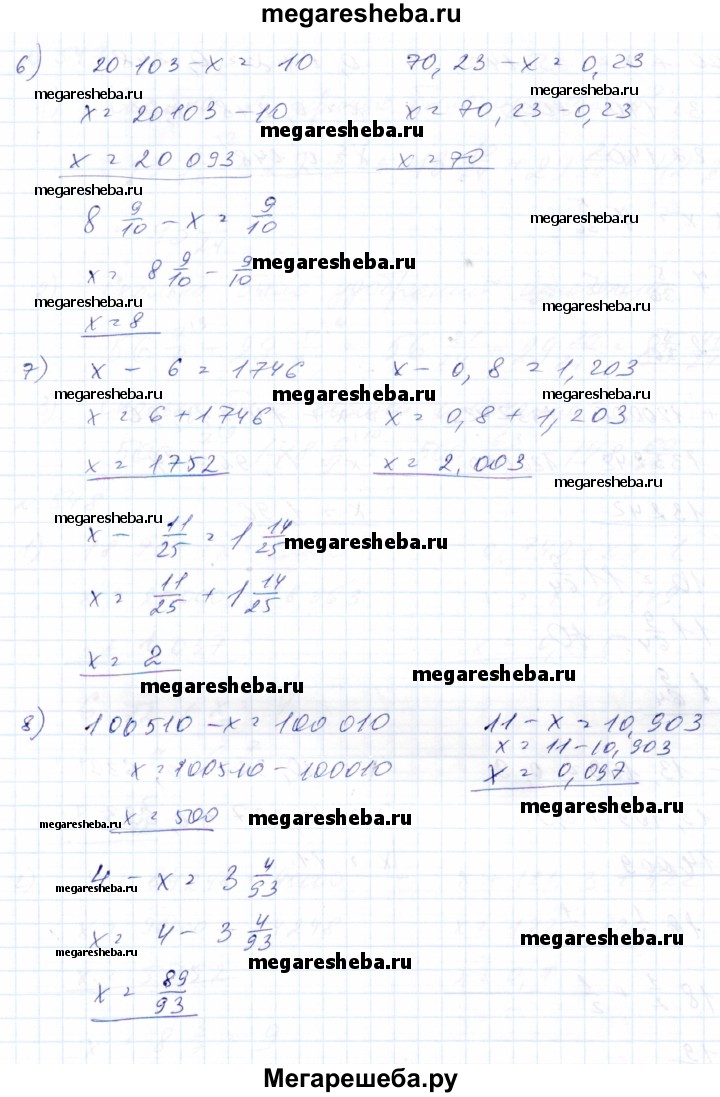 megaresheba.ru
6) 20 103 - x = 10 70,23 - x = 0,23
megaresheba.ru megaresheba.ru
x = 20103 - 10 x = 70,23 - 0,23
megaresheba.ru
x = 20 093 x = 70
megaresheba.ru
8 9/10 - x = 9/10
megaresheba.ru
x = 8 9/10 - 9/10
megaresheba.ru
megaresheba.ru megaresheba.ru
x = 8
7) x - 6 = 1746 x - 0,8 = 1,203
megaresheba.ru megaresheba.ru megaresheba.ru
x = 6 + 1746 x = 0,8 + 1,203
x = 1752 x = 2,003
megaresheba.ru
megaresheba.ru
x - 11/25 = 1 14/25
megaresheba.ru
x = 11/25 + 1 14/25
x = 2
megaresheba.ru megaresheba.ru
8) 100510 - x = 100 010 11 - x = 10,903
x = 11 - 10,903
x = 100510 - 100010 x = 0,097
megaresheba.ru
x = 500
megaresheba.ru megaresheba.ru
4 - x = 3 4/93
megaresheba.ru
x = 4 - 3 4/93
megaresheba.ru
megaresheba.ru megaresheba.ru
x = 89/93
Мегарешеба.ру